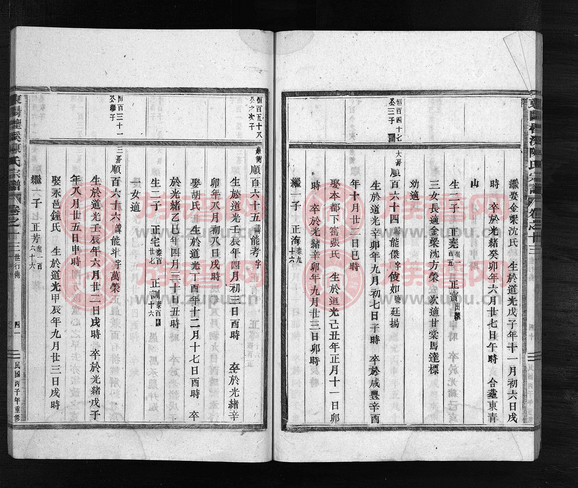 繼娶金梁沈氏 生於道光戊子年十一月初六日戌
時 卒於光緒癸卯年六月廿七日午時 合葬東青
山
生二子 正堯 正
三女長適金梁沈方榮 次適甘棠馬達標
幼適
恒百四十七
公三子
大 順百六十四 能儀 字俊如 號廷揚
生於道光辛卯年九月初七日子時 卒於咸豐辛酉
年十月廿二日
娶本都下宅張氏 生於道光己丑年正月十一日卯
時 卒於光緒辛卯年九月廿三日卯時
繼一子 正海
恒百五十八
公之次子
順百六十五 能考 字
生於道光壬辰年四月初三日酉時 卒於光緒辛
娶胡氏 生於道光丁酉年十二月十七日酉時 卒
於光緒乙巳年四月三十日丑時
生二子 正宅 正
恒百三十一
公學子
三 順百六十六 能斗 字萬榮
生於道光壬辰年六月廿二日戌時 卒於光緒戊子
年八月廿五日申時
娶永邑鍾氏 生於道光甲辰年九月廿三日戌時
繼一子 正芳
陳氏宗譜 卷之
四一
民國丙子年重修